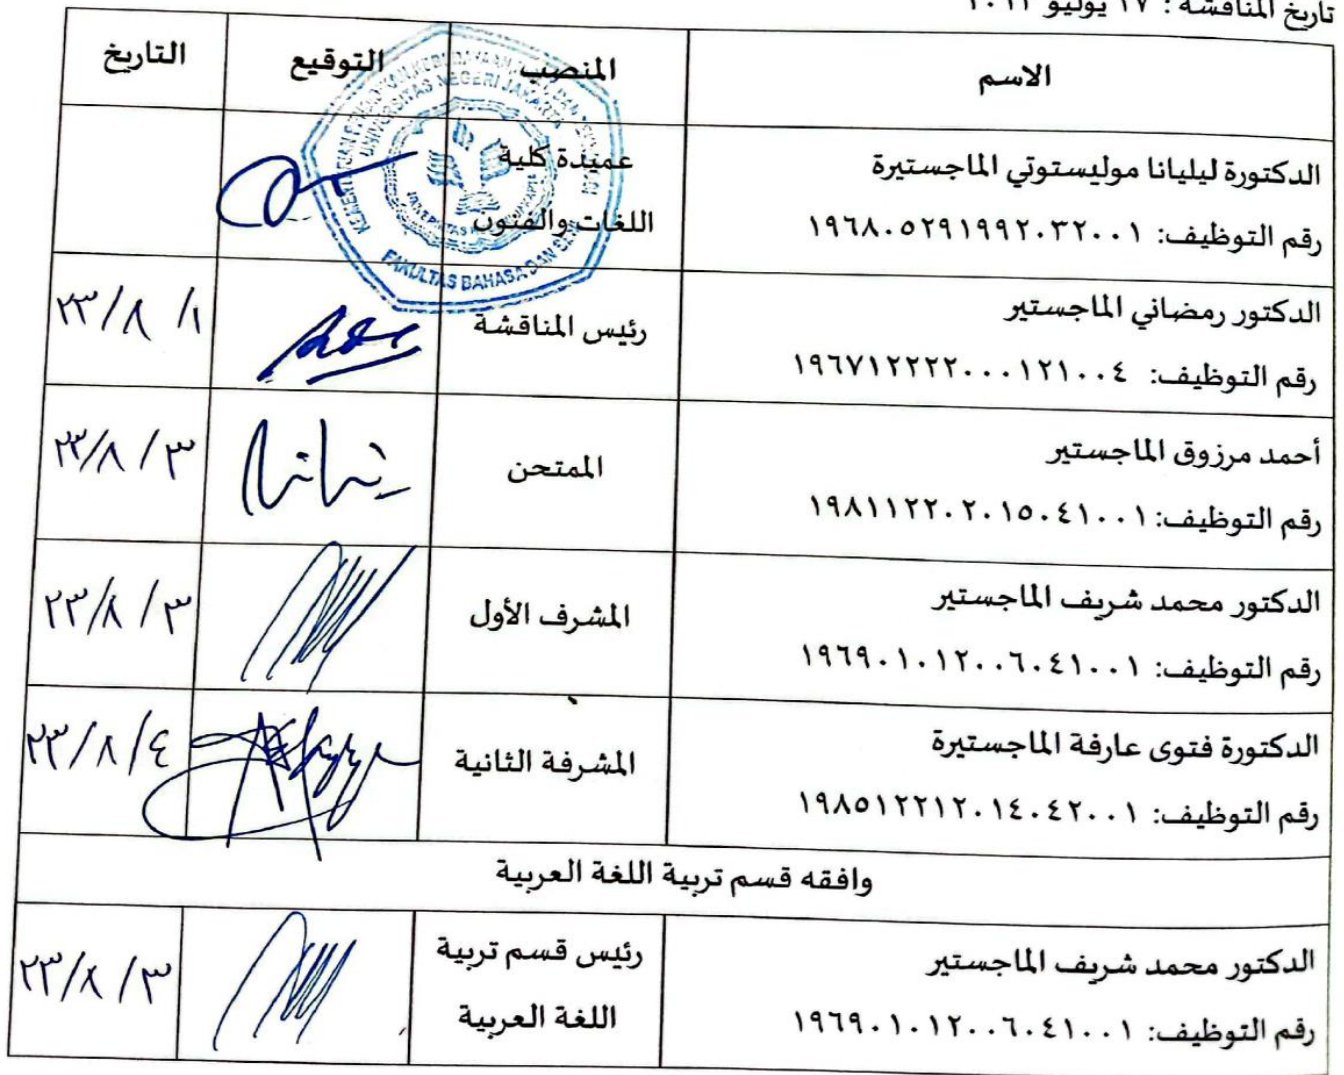 تاريخ المناقشة : ١٧ يوليو ٢٠٢٣
الاسم المنصب التوقيع التاريخ
الدكتورة ليليانا موليستوتي الماجستيرة
رقم التوظيف: ١٩٦٨٠٥٢٩١٩٩٢٠٣٢٠٠١
عميدة كلية
اللغات والفنون
UNIVERSITAS NEGERI JAKARTA
FAKULTAS BAHASA DAN SENI
الدكتور رمضاني الماجستير
رقم التوظيف: ١٩٦٧١٢٢٢٢٠٠٠١٢١٠٠٤
رئيس المناقشة
١/ ٨/ ٢٣
أحمد مرزوق الماجستير
رقم التوظيف: ١٩٨١١٢٢٠٢٠١٥٠٤١٠٠١
الممتحن
٣/ ٨/ ٢٣
الدكتور محمد شريف الماجستير
رقم التوظيف: ١٩٦٩٠١٠١٢٠٠٦٠٤١٠٠١
المشرف الأول
٣/ ٨/ ٢٣
الدكتورة فتوى عارفة الماجستيرة
رقم التوظيف: ١٩٨٥١٢٢١٢٠١٤٠٤٢٠٠١
المشرفة الثانية
٤/ ٨/ ٢٣
وافقه قسم تربية اللغة العربية
الدكتور محمد شريف الماجستير
رقم التوظيف: ١٩٦٩٠١٠١٢٠٠٦٠٤١٠٠١
رئيس قسم تربية
اللغة العربية
٣/ ٨/ ٢٣